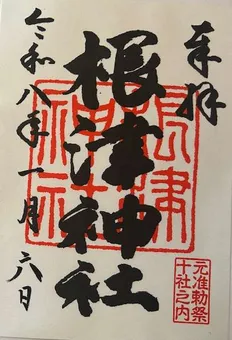 奉拝
根津神社
根津神社
元准勅祭
十社之内
令和八年一月六日